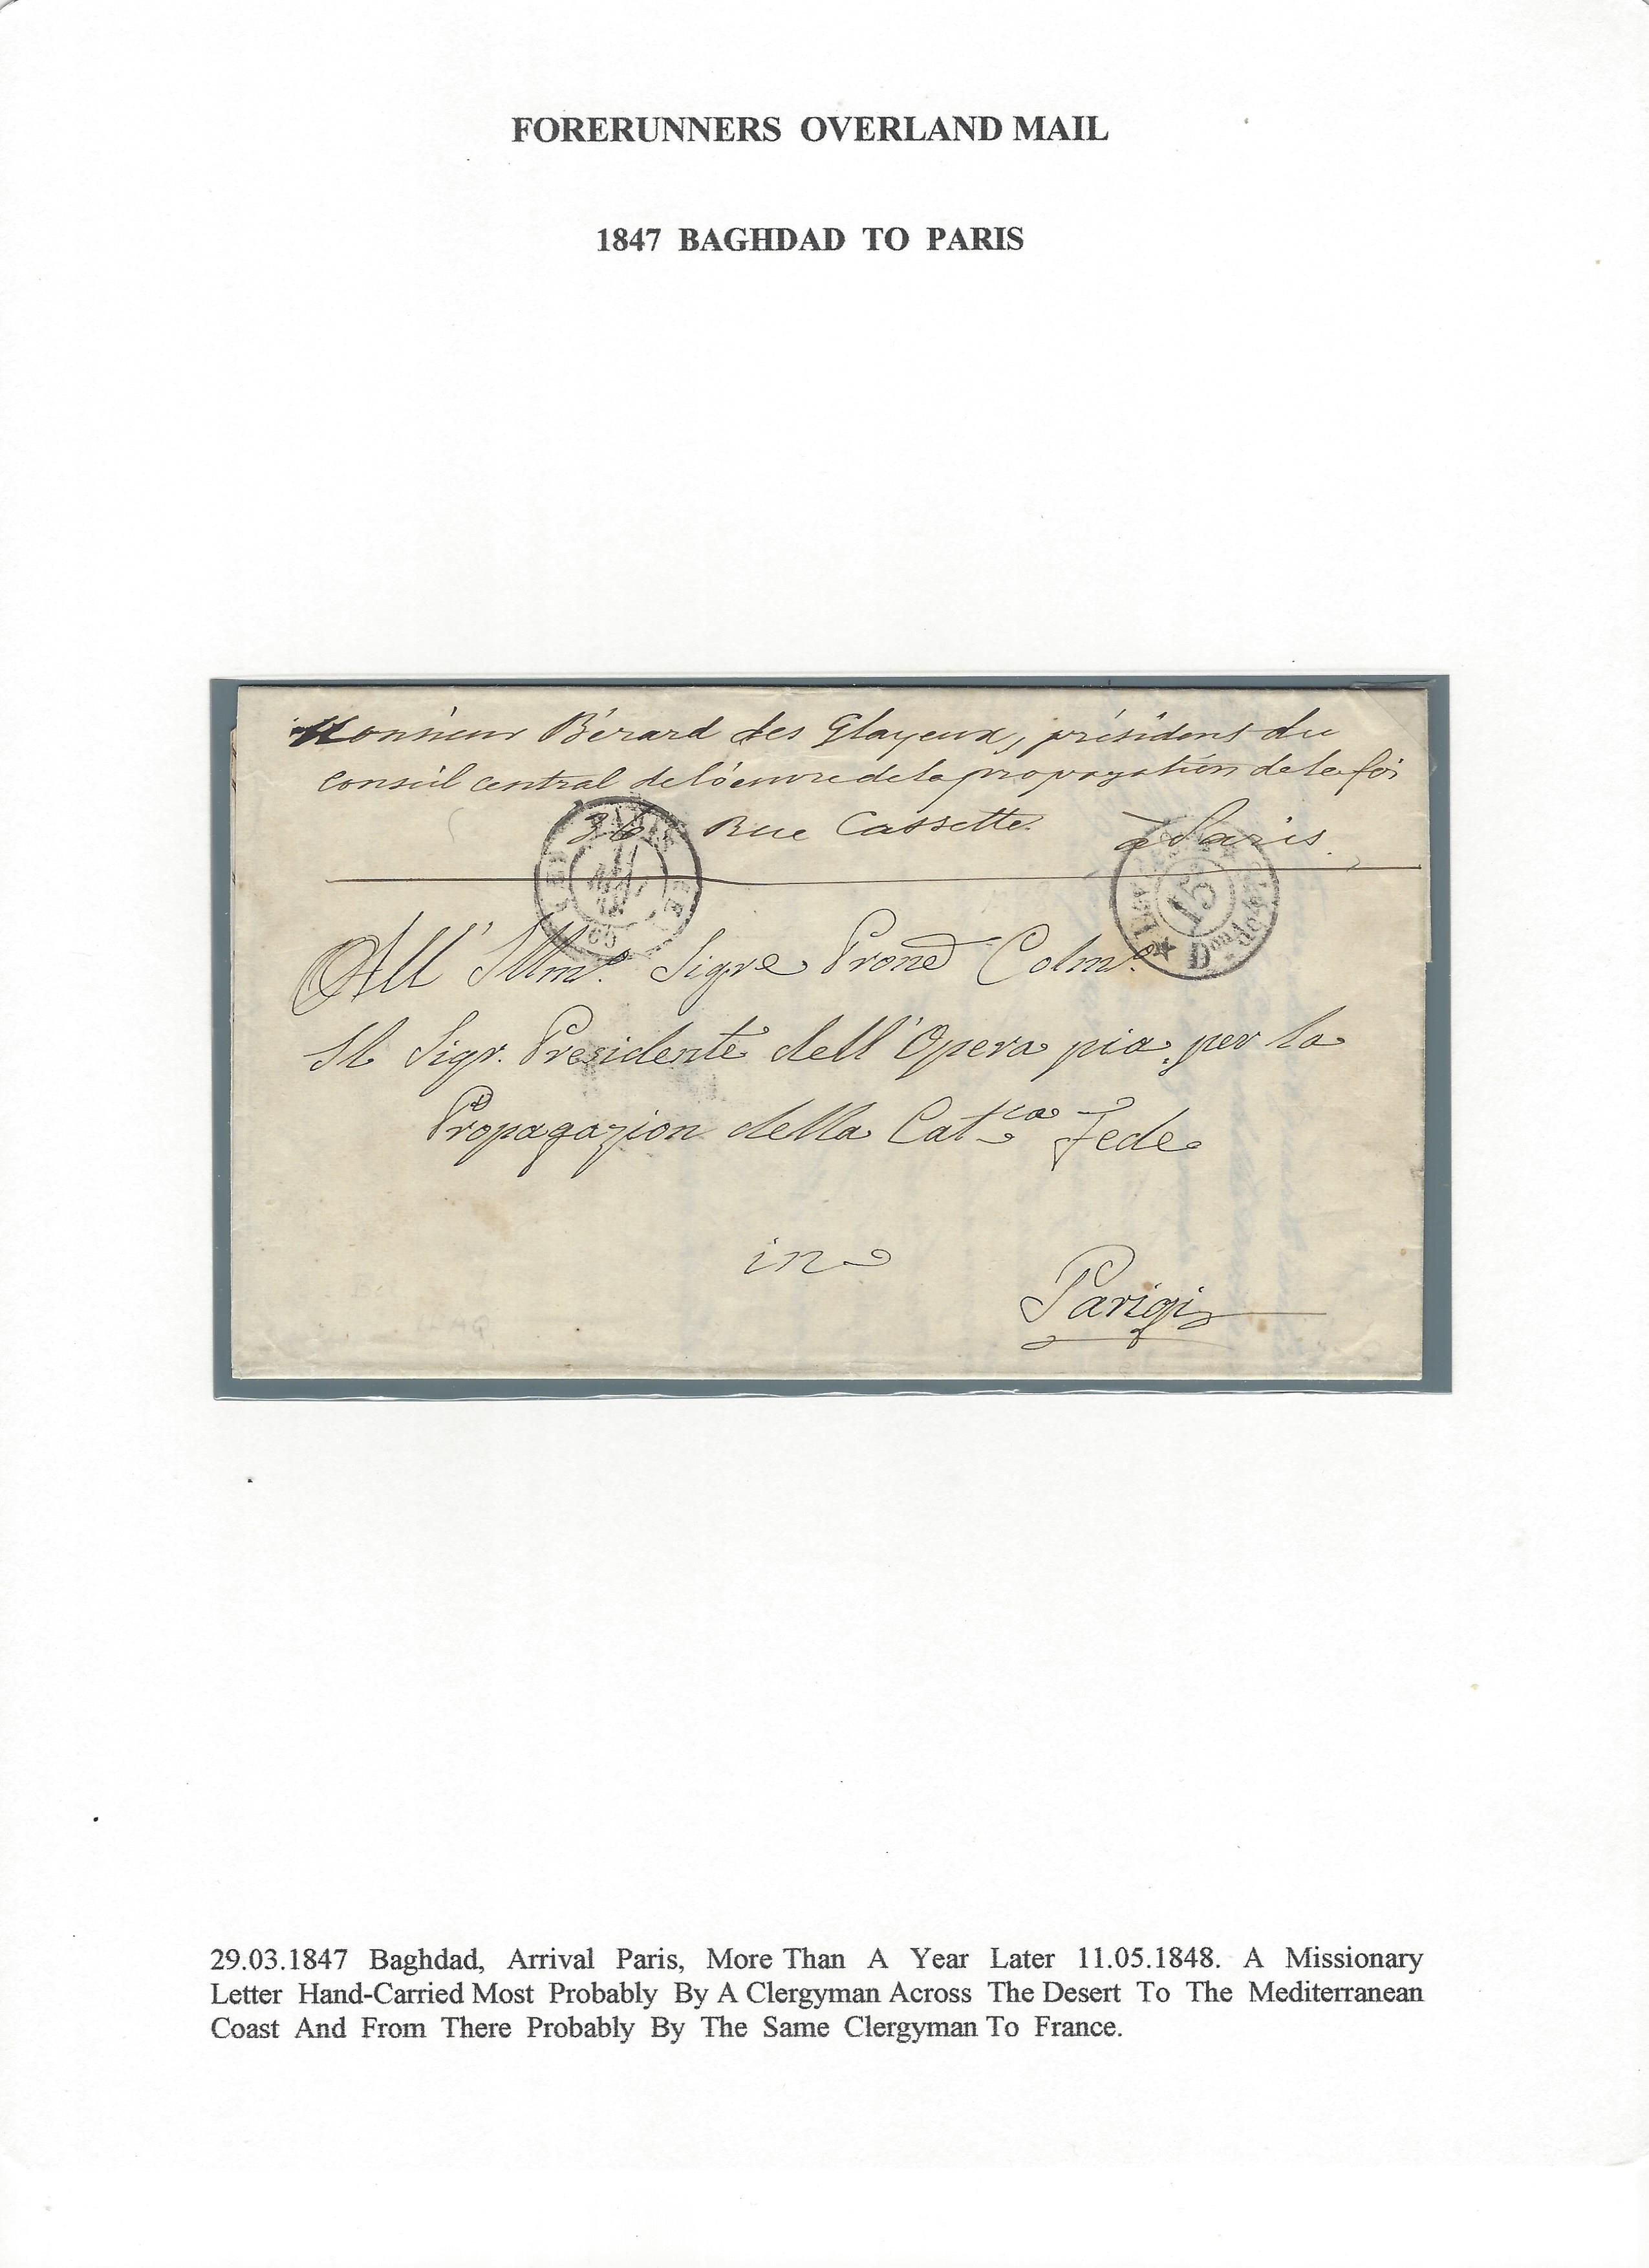 FORERUNNERS OVERLAND MAIL
1847 BAGHDAD TO PARIS
Monsieur Bérard des Glayeux, président du
conseil central de l'oeuvre de la propagation de la foi
36 Rue Cassette. à Paris.
PARIS
11
MAI
48
60
15
All' Illmo. Sigre Prone Colmo.
Il Sigr. Presidente dell' Opera pia per la
Propagazion della Catca Fede
in
Parigi
29.03.1847 Baghdad, Arrival Paris, More Than A Year Later 11.05.1848. A Missionary
Letter Hand-Carried Most Probably By A Clergyman Across The Desert To The Mediterranean
Coast And From There Probably By The Same Clergyman To France.